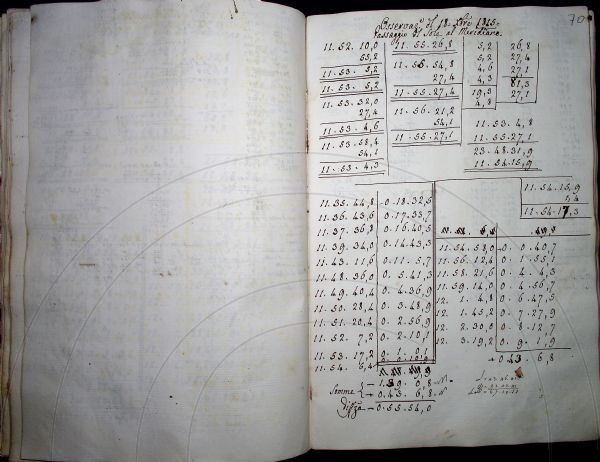 70
Passaggio del Sole al Meridiano
11. 52. 10,0
55,2
11. 53. 5,2
11. 53. 5,2
11. 53. 32,0
27,4
11. 53. 4,6
11. 53. 58,4
54,1
11. 53. 4,3
11. 55. 26,8
11. 56. 54,8
27,4
11. 55. 27,4
11. 56. 21,2
54,1
11. 55. 27,1
5,2 26,8
5,2 27,4
4,6 27,1
4,3 81,3
19,3 27,1
4,8
11. 53. 4,8
11. 55. 27,1
23. 48. 31,9
11. 54. 15,9
11. 54. 15,9
1,4
11. 54. 17,3
11. 35. 44,8 - 0. 18. 32,5
11. 36. 43,6 0. 17. 33,7
11. 37. 36,8 0. 16. 40,5
11. 39. 34,0 0. 14. 43,3
11. 43. 11,6 0. 11. 5,7
11. 48. 36,0 0. 5. 41,3
11. 49. 40,4 0. 4. 36,9
11. 50. 28,4 0. 3. 48,9
11. 51. 20,4 0. 2. 56,9
11. 52. 7,2 0. 2. 10,1
11. 53. 17,2 0. 1. 0,1
11. 54. 6,4 0. 0. 10,9
11. 54. 58,0 0. 0. 40,7
11. 56. 12,4 0. 1. 55,1
11. 58. 21,6 0. 4. 4,3
11. 59. 14,0 0. 4. 56,7
12. 1. 4,8 0. 6. 47,5
12. 1. 45,2 0. 7. 27,9
12. 2. 30,0 0. 8. 12,7
12. 3. 19,2 0. 9. 1,9
+ 0. 43. 6,8
Somme - 1. 39. 0,8
+ 0. 43. 6,8
- 0. 55. 54,0